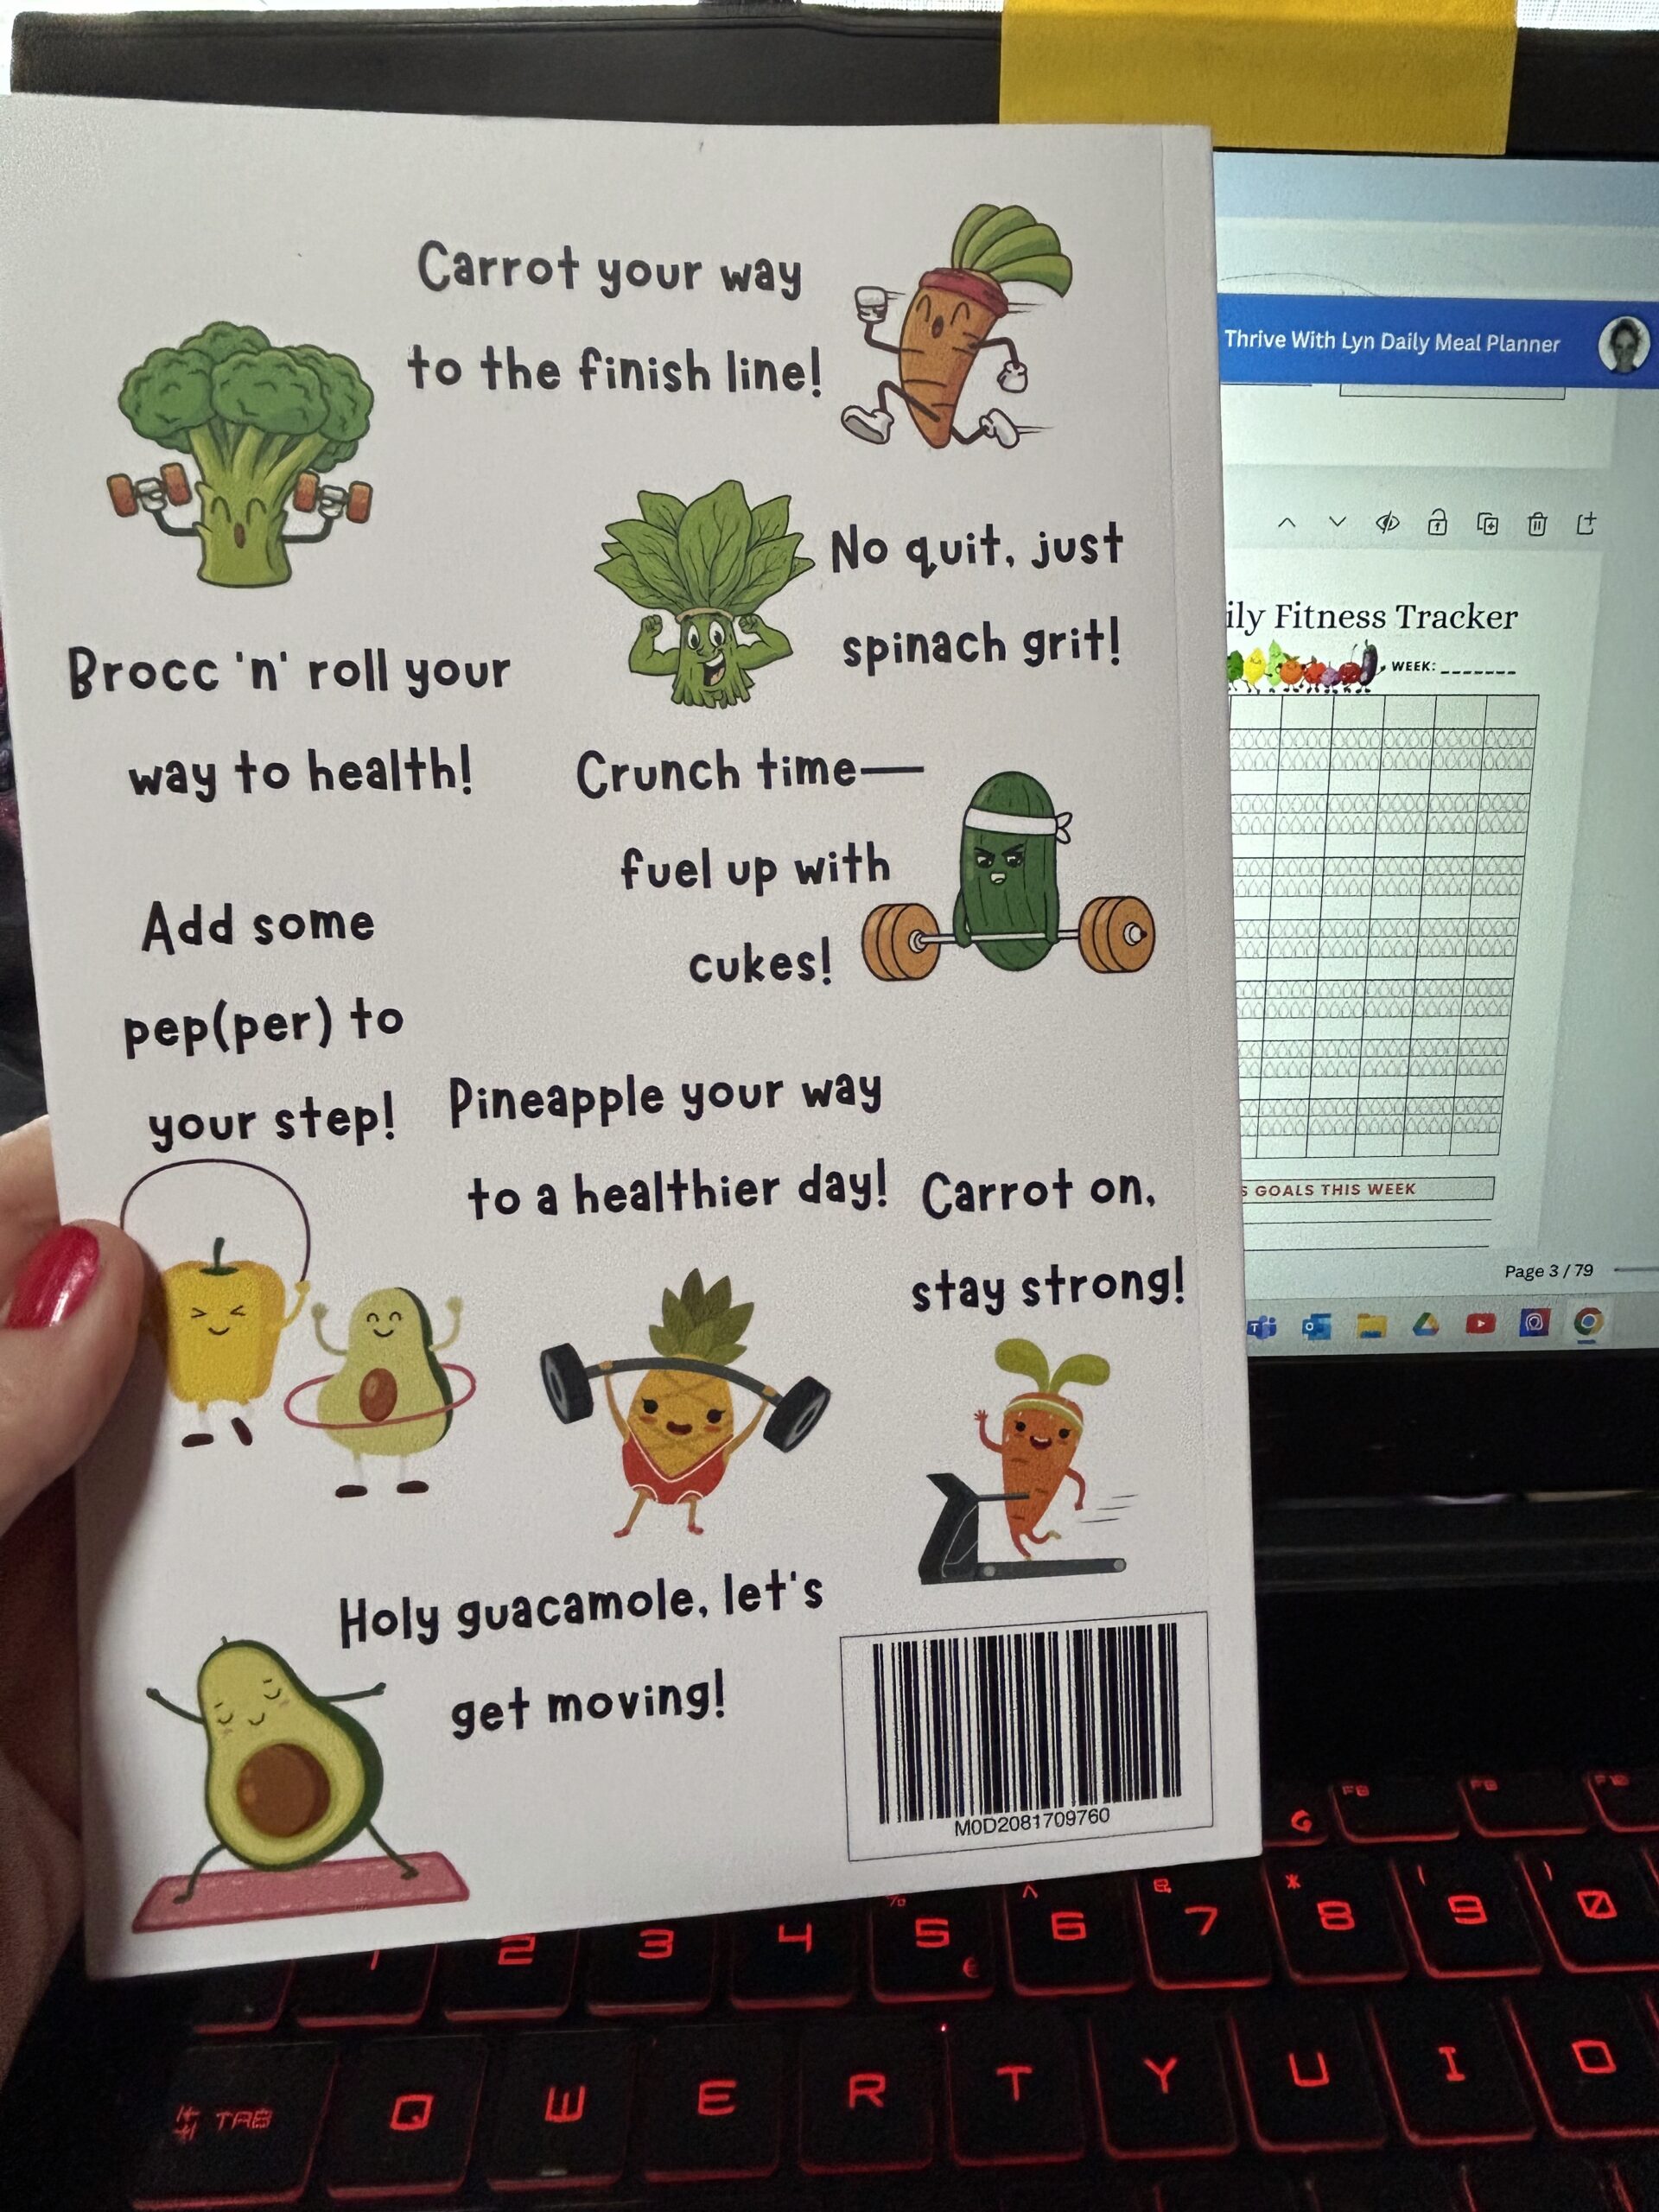 Carrot your way
to the finish line!
No quit, just
spinach grit!
Brocc 'n' roll your
way to health!
Crunch time—
fuel up with
cukes!
Add some
pep(per) to
your step!
Pineapple your way
to a healthier day!
Carrot on,
stay strong!
Holy guacamole, let's
get moving!
M0D2081709760
Thrive With Lyn Daily Meal Planner
ily Fitness Tracker
WEEK: _______
S GOALS THIS WEEK
Page 3 / 79
G F8 F9 F10
% ^ & * ( )
1 2 3 4 5 6 7 8 9 0
€
TAB Q W E R T Y U I O